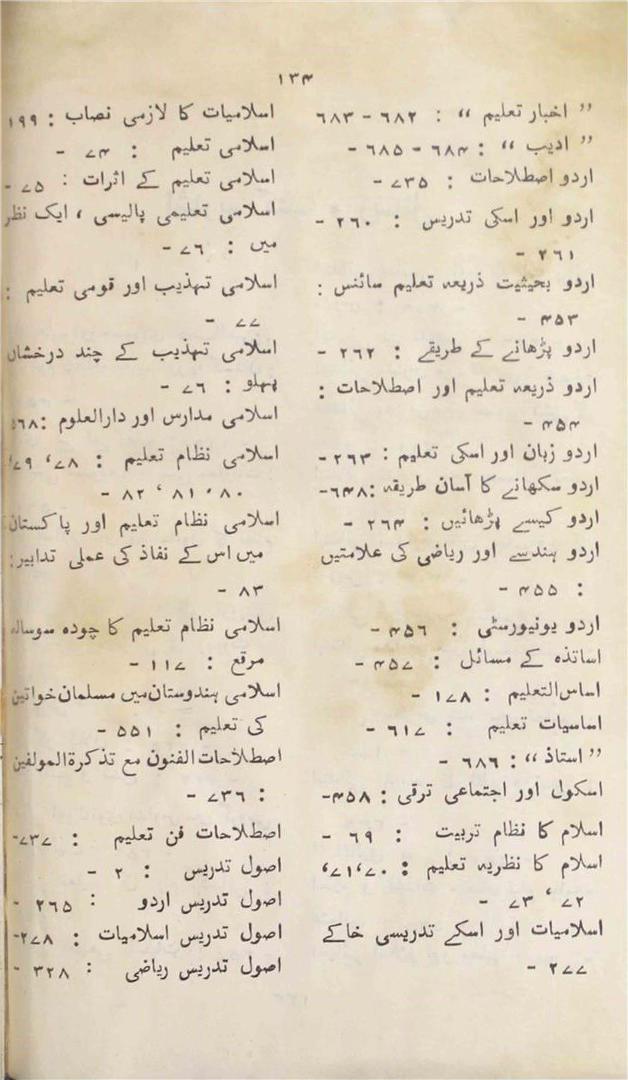 ۱۳۴
” اخبار تعلیم “ : ۶۸۲ - ۶۸۳
” ادیب “ : ۶۸۴ - ۶۸۵ -
اردو اصطلاحات : ۷۳۵ -
اردو اور اسکی تدریس : ۲۶۰ -
۲۶۱ -
اردو بحیثیت ذریعہ تعلیم سائنس :
۴۵۳ -
اردو پڑھانے کے طریقے : ۲۶۲ -
اردو ذریعہ تعلیم اور اصطلاحات :
۴۵۴ -
اردو زبان اور اسکی تعلیم : ۲۶۳ -
اردو سکھانے کا آسان طریقہ : ۶۴۸ -
اردو کیسے پڑھائیں : ۲۶۴ -
اردو ہندسے اور ریاضی کی علامتیں
: ۴۵۵ -
اردو یونیورسٹی : ۴۵۶ -
اساتذہ کے مسائل : ۴۵۷ -
اساس التعلیم : ۱۷۸ -
اساسیات تعلیم : ۶۱۷ -
” استاذ “ : ۶۸۶ -
اسکول اور اجتماعی ترقی : ۴۵۸ -
اسلام کا نظام تربیت : ۶۹ -
اسلام کا نظریہ تعلیم : ۷۰، ۷۱،
۷۲، ۷۳ -
اسلامیات اور اسکے تدریسی خاکے
۲۷۷ -
اسلامیات کا لازمی نصاب : ۱۹۹
اسلامی تعلیم : ۷۴ -
اسلامی تعلیم کے اثرات : ۷۵ -
اسلامی تعلیمی پالیسی ، ایک نظر
میں : ۷۶ -
اسلامی تہذیب اور قومی تعلیم :
۷۷ -
اسلامی تہذیب کے چند درخشاں
پہلو : ۷۶ -
اسلامی مدارس اور دارالعلوم :
اسلامی نظام تعلیم : ۷۸، ۷۹،
۸۰، ۸۱، ۸۲ -
اسلامی نظام تعلیم اور پاکستان
میں اس کے نفاذ کی عملی تدابیر :
۸۳ -
اسلامی نظام تعلیم کا چودہ سو سالہ
مرقع : ۱۱۷ -
اسلامی ہندوستان میں مسلمان خواتین
کی تعلیم : ۵۵۱ -
اصطلاحات الفنون مع تذکرۃ المولفین
: ۷۳۶ -
اصطلاحات فن تعلیم : ۷۳۷ -
اصول تدریس : ۲ -
اصول تدریس اردو : ۲۶۵ -
اصول تدریس اسلامیات : ۲۷۸ -
اصول تدریس ریاضی : ۳۲۸ -